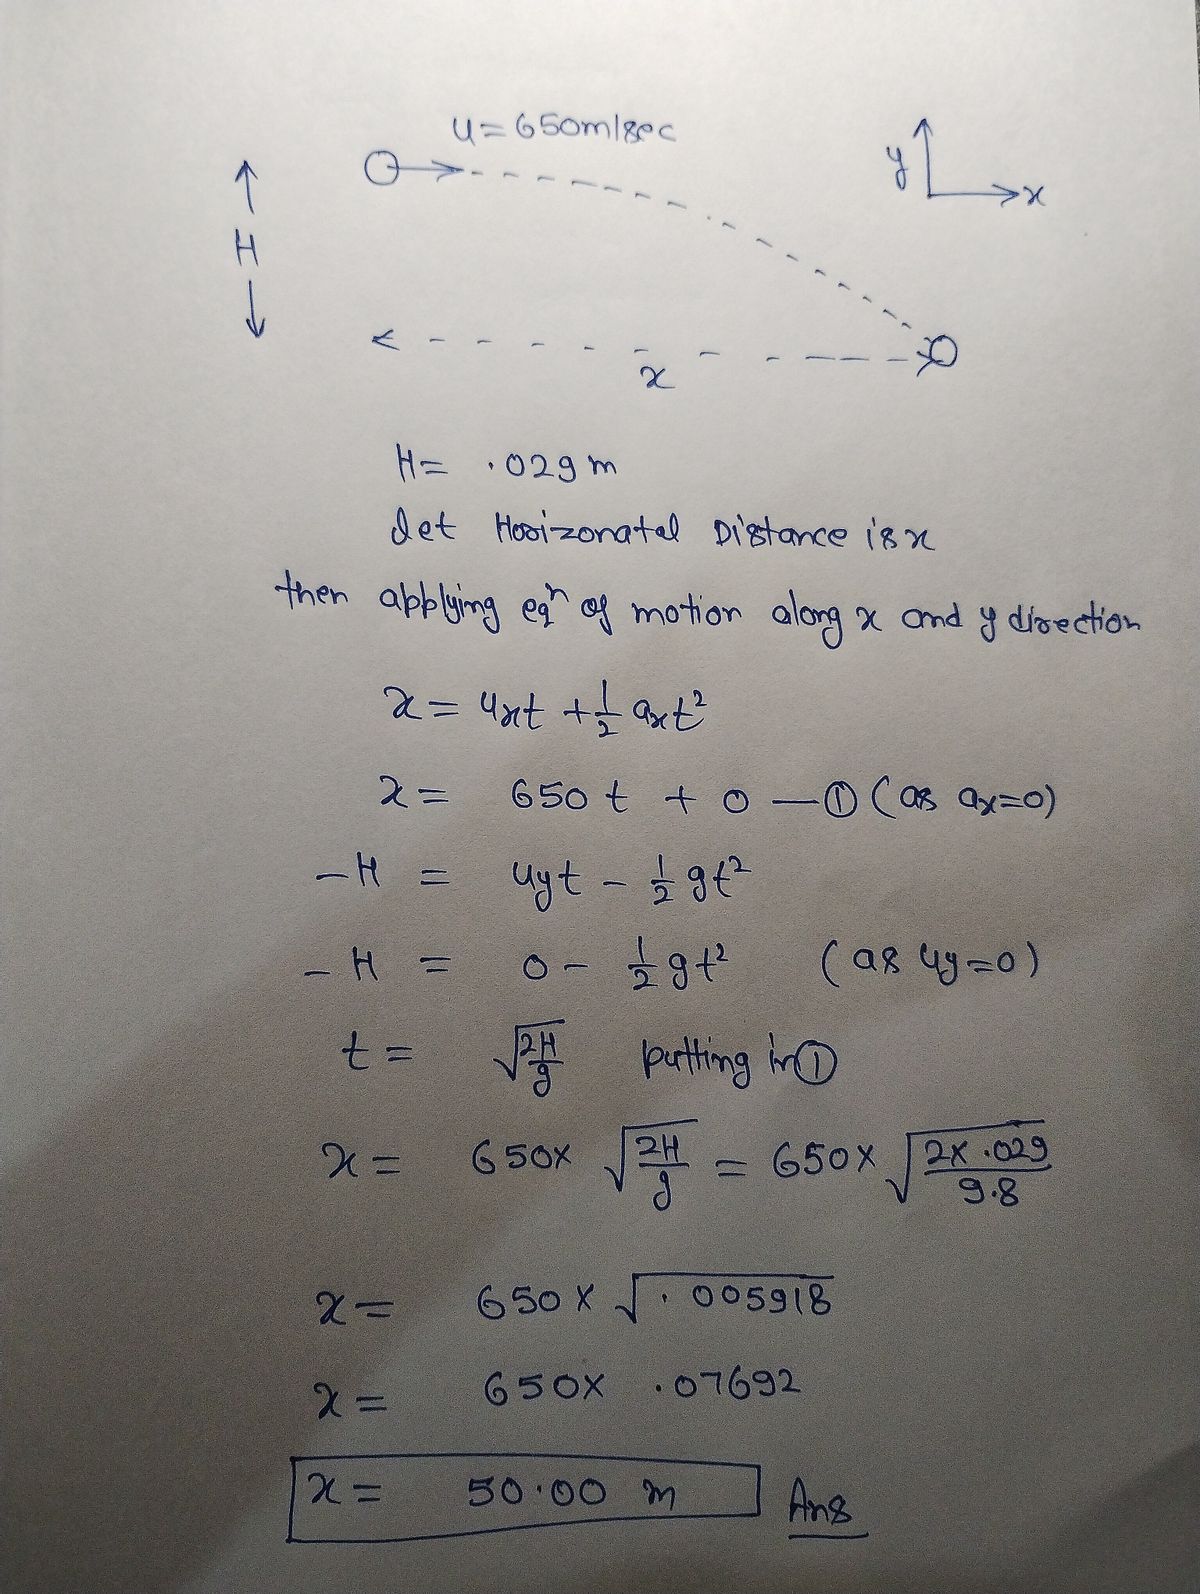 u=650m/sec
y
x
H
x
H= .029 m
let Horizonatal Distance is x
then applying eqⁿ of motion along x and y direction
x = uxt + 1/2 axt²
x = 650 t + 0 —① (as ax=0)
-H = uyt - 1/2 gt²
-H = 0 - 1/2 gt² (as uy=0)
t = √(2H/g) putting in ①
x = 650x √(2H/g) = 650x √(2x.029/9.8)
x = 650 x √.005918
x = 650x .07692
x = 50.00 m Ans